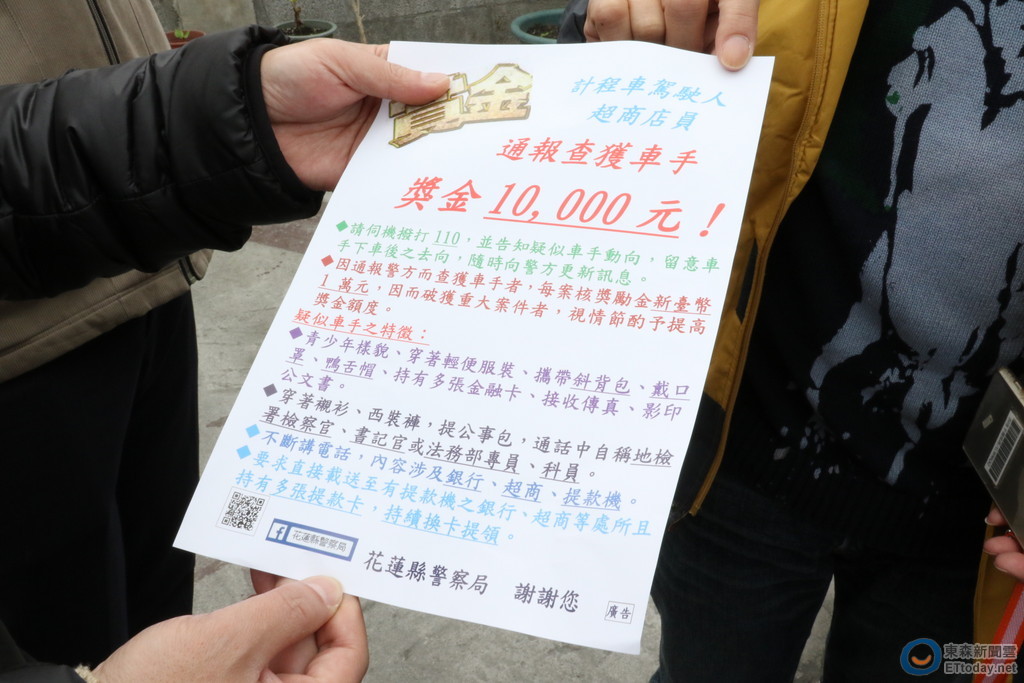 獎金
計程車駕駛人
超商店員
通報查獲車手
獎金 10,000 元！
◆請伺機撥打 110，並告知疑似車手動向，留意車
手下車後之去向，隨時向警方更新訊息。
◆因通報警方而查獲車手者，每案核獎勵金新臺幣
1 萬元，因而破獲重大案件者，視情節酌予提高
獎金額度。
疑似車手之特徵：
◆青少年樣貌、穿著輕便服裝、攜帶斜背包、戴口
罩、鴨舌帽、持有多張金融卡、接收傳真、影印
公文書。
◆穿著襯衫、西裝褲，提公事包，通話中自稱地檢
署檢察官、書記官或法務部專員、科員。
◆不斷講電話，內容涉及銀行、超商、提款機。
◆要求直接載送至有提款機之銀行、超商等處所且
持有多張提款卡，持續換卡提領。
f 花蓮縣警察局
花蓮縣警察局 謝謝您
廣告
東森新聞雲
ETtoday.net